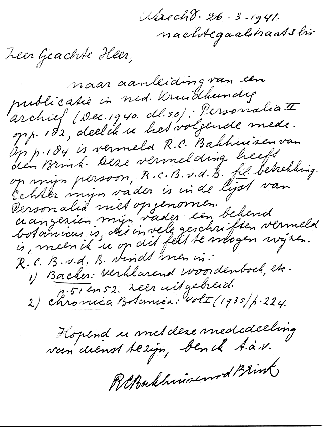 Utrecht. 26-3-1941.
nachtegaalstraat 51 bis
Zeer Geachte Heer,
naar aanleiding van een
publicatie in ned. Kruidkundig
archief (Dec. 1940. dl. 50): Personalia II
op p. 182, deel ik u het volgende mede.
Op p. 184 is vermeld R.C. Bakhuizen van
den Brink. Deze vermelding heeft
op mijn persoon, R.C.B.v.d.B. fil. betrekking.
Echter mijn vader is in de lijst van
Personalia niet opgenomen.
Aangezien mijn vader een bekend
botanicus is, die in vele geschriften vermeld
is, meen ik u op dit feit te mogen wijzen.
R.C.B.v.d.B. vindt men in:
1) Backer: Verklarend woordenboek, etc.
p. 51 en 52. Zeer uitgebreid.
2) Chronica Botanica: Vol I (1935) p. 224.
Hopend u met deze mededeeling
van dienst te zijn, ben ik t.à.v.
RCBakhuizen v d Brink